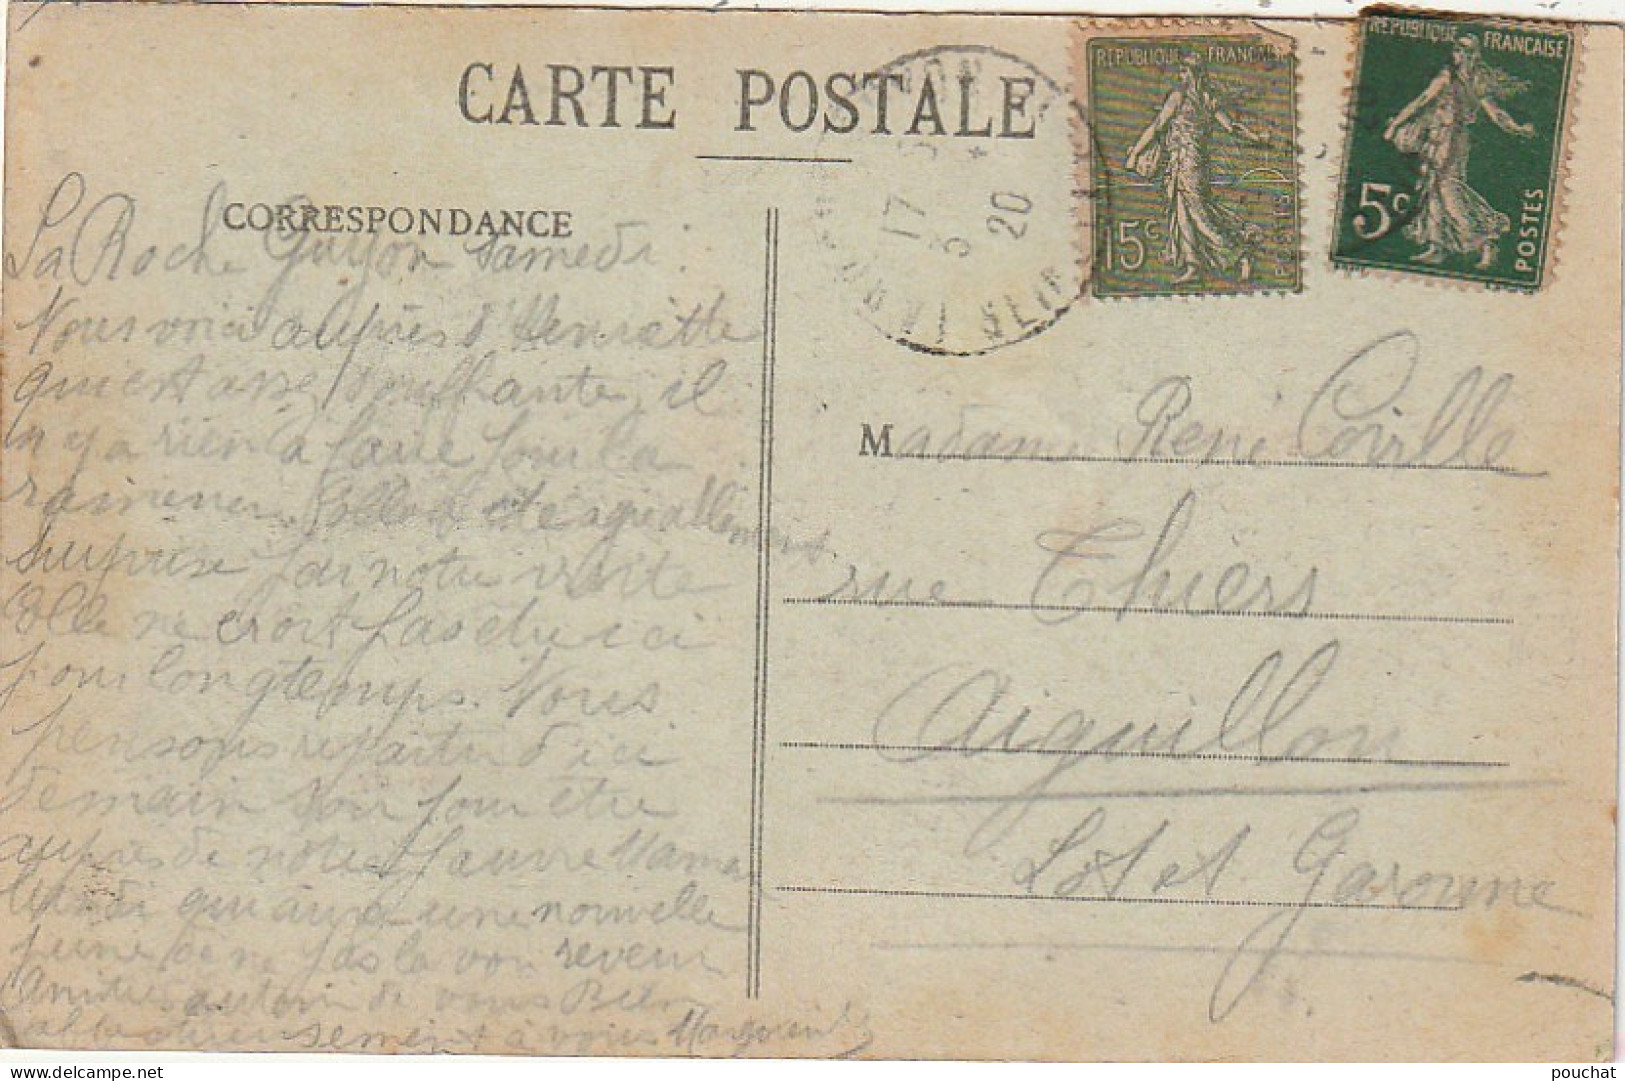 CARTE POSTALE
CORRESPONDANCE
La Roche Guyon Samedi
Nous voici auprès d'Henriette
qui est assez souffrante, il
n'y a rien à faire pour la
ramener. Elle a été agréablement
surprise par notre visite
Elle ne croit pas être ici
pour longtemps. Nous
pensons repartir d'ici
demain soir pour être
auprès de notre pauvre Maman
lundi qui aura une nouvelle
peine de ne pas la voir revenir
Amitiés autour de vous Bien
affectueusement à vous Marguerite
REPUBLIQUE FRANÇAISE
15c
POSTES
REPUBLIQUE FRANÇAISE
5c
POSTES
17
3
20
Madame René Coville
rue Thiers
Aiguillon
Lot et Garonne
pouchat